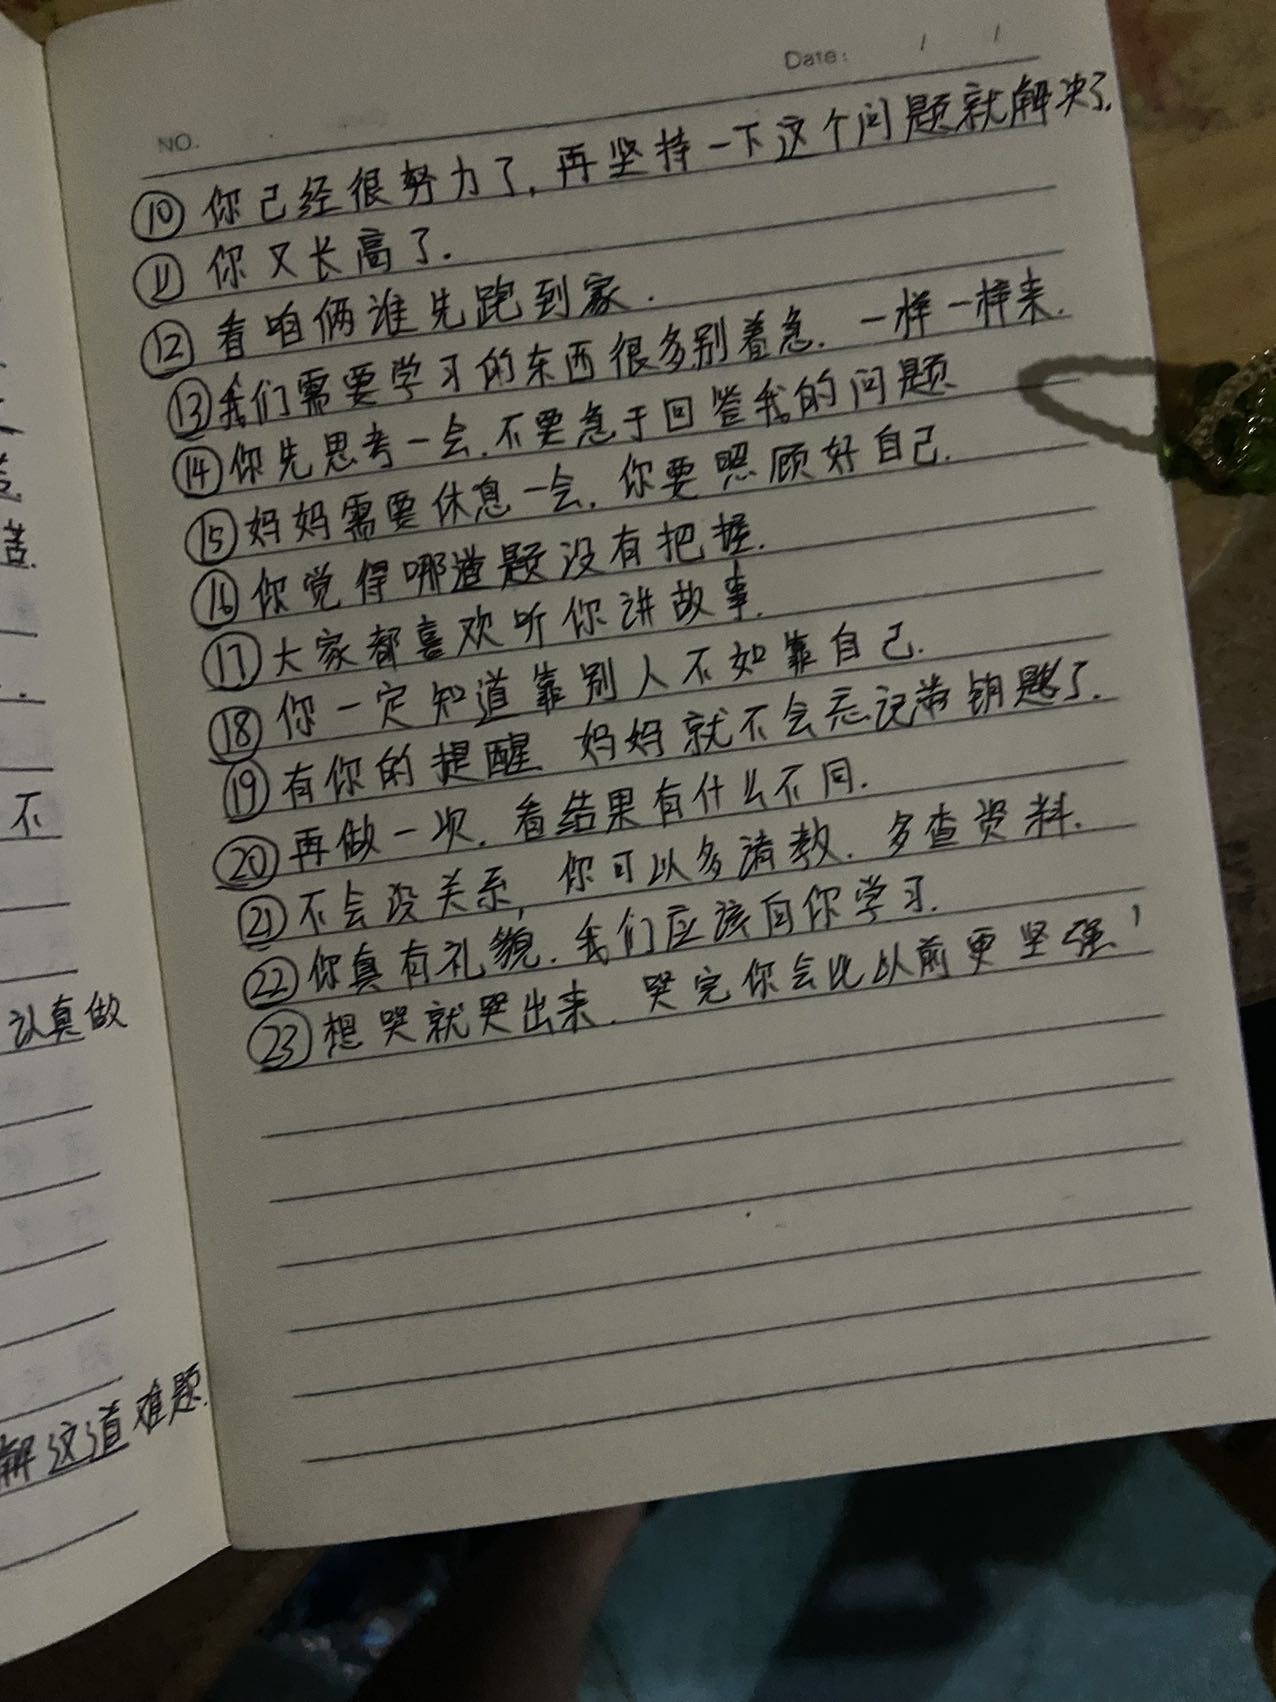 NO.
Date: / /
⑩ 你已经很努力了,再坚持一下这个问题就解决了.
⑪ 你又长高了.
⑫ 看咱俩谁先跑到家.
⑬ 我们需要学习的东西很多别着急.一样一样来.
⑭ 你先思考一会.不要急于回答我的问题
⑮ 妈妈需要休息一会.你要照顾好自己.
⑯ 你觉得哪道题没有把握.
⑰ 大家都喜欢听你讲故事.
⑱ 你一定知道靠别人不如靠自己.
⑲ 有你的提醒 妈妈就不会忘记带钥匙了.
⑳ 再做一次.看结果有什么不同.
㉑ 不会没关系,你可以多请教.多查资料.
㉒ 你真有礼貌.我们应该向你学习.
㉓ 想哭就哭出来.哭完你会比以前更坚强!
苦.
不
认真做
解这道难题.